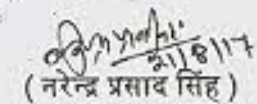 21/8/17
( नरेन्द्र प्रसाद सिंह )